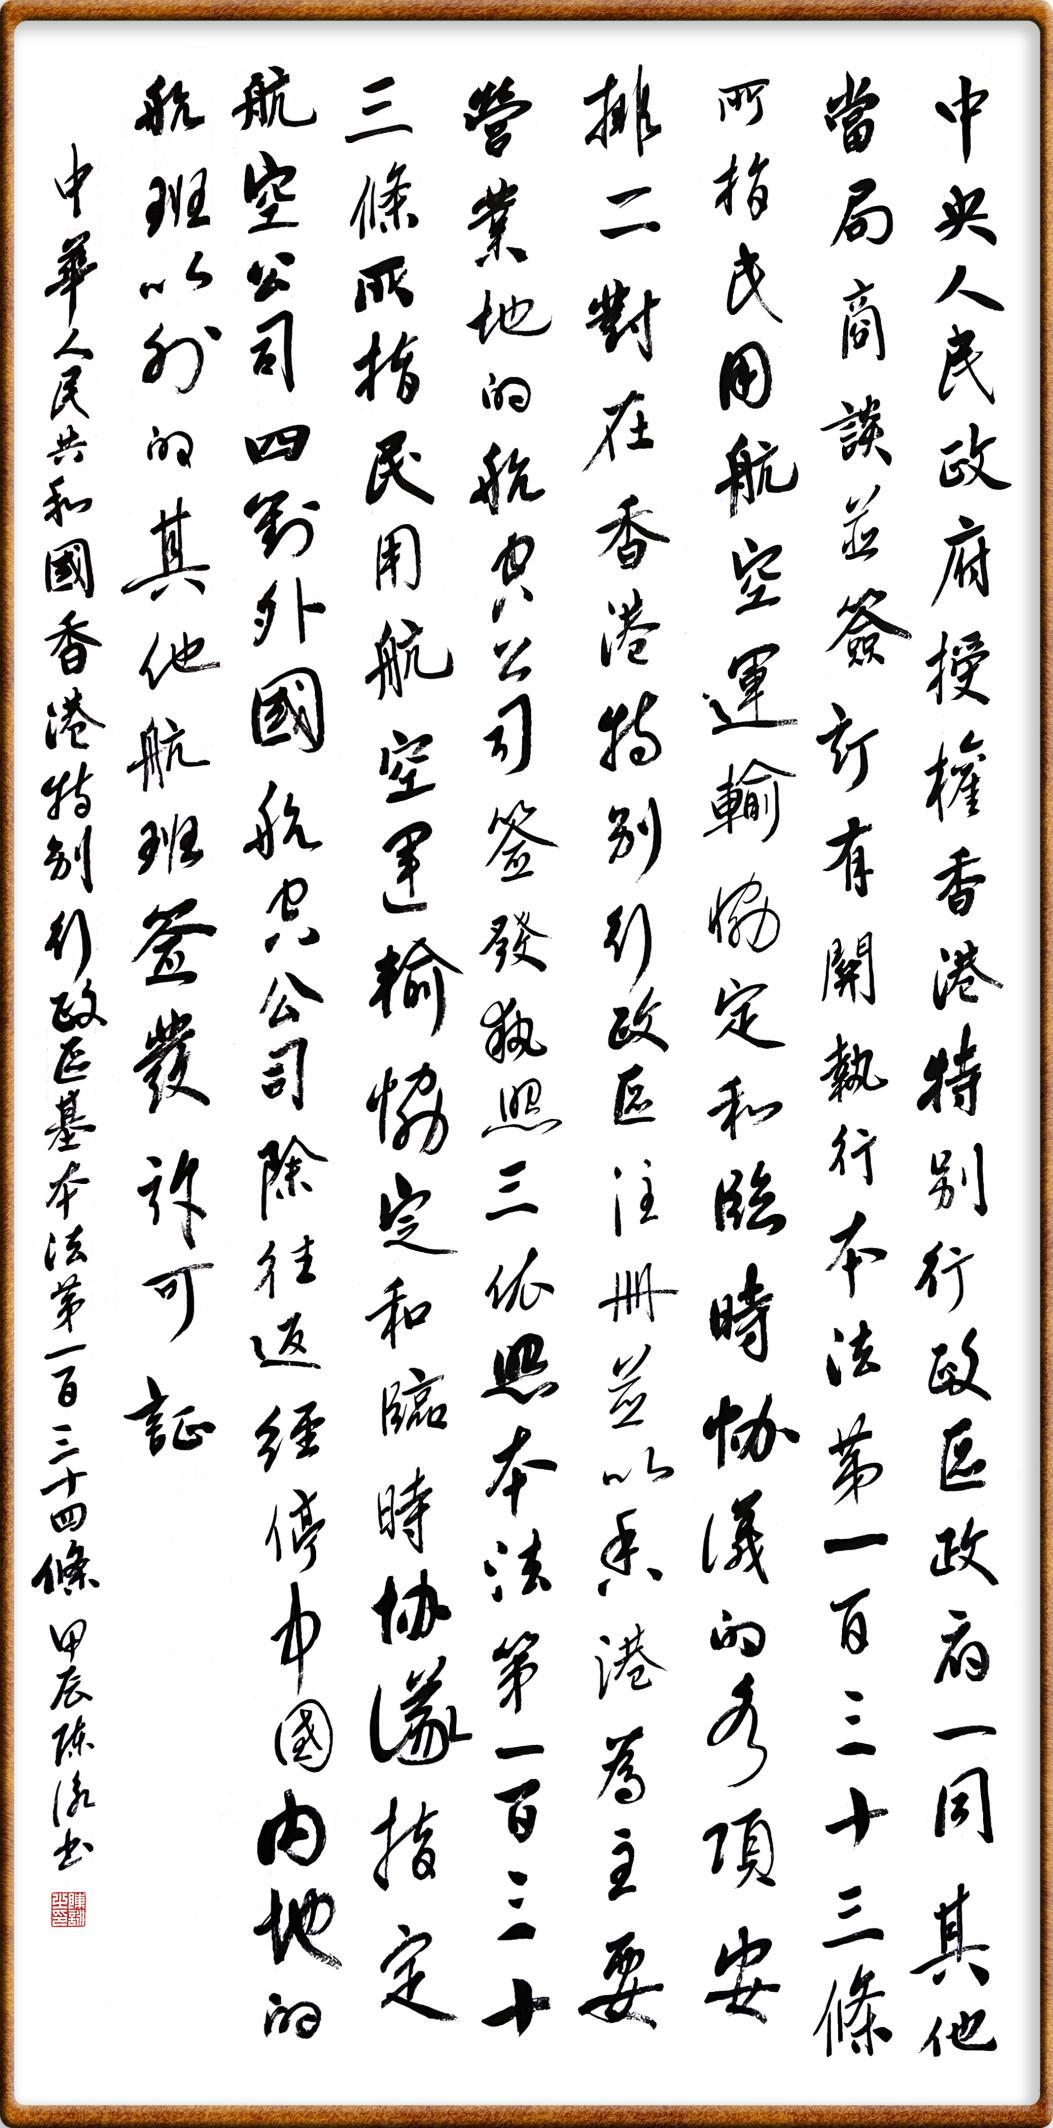 中央人民政府授權香港特別行政區政府一同其他
當局商談並簽訂有關執行本法第一百三十三條
所指民用航空運輸協定和臨時協議的各項安
排二對在香港特別行政區注冊並以香港為主要
營業地的航空公司簽發執照三依照本法第一百三十
三條所指民用航空運輸協定和臨時協議指定
航空公司四對外國航空公司除往返經停中國內地的
航班以外的其他航班簽發許可証
中華人民共和國香港特別行政區基本法第一百三十四條甲辰陳泳书